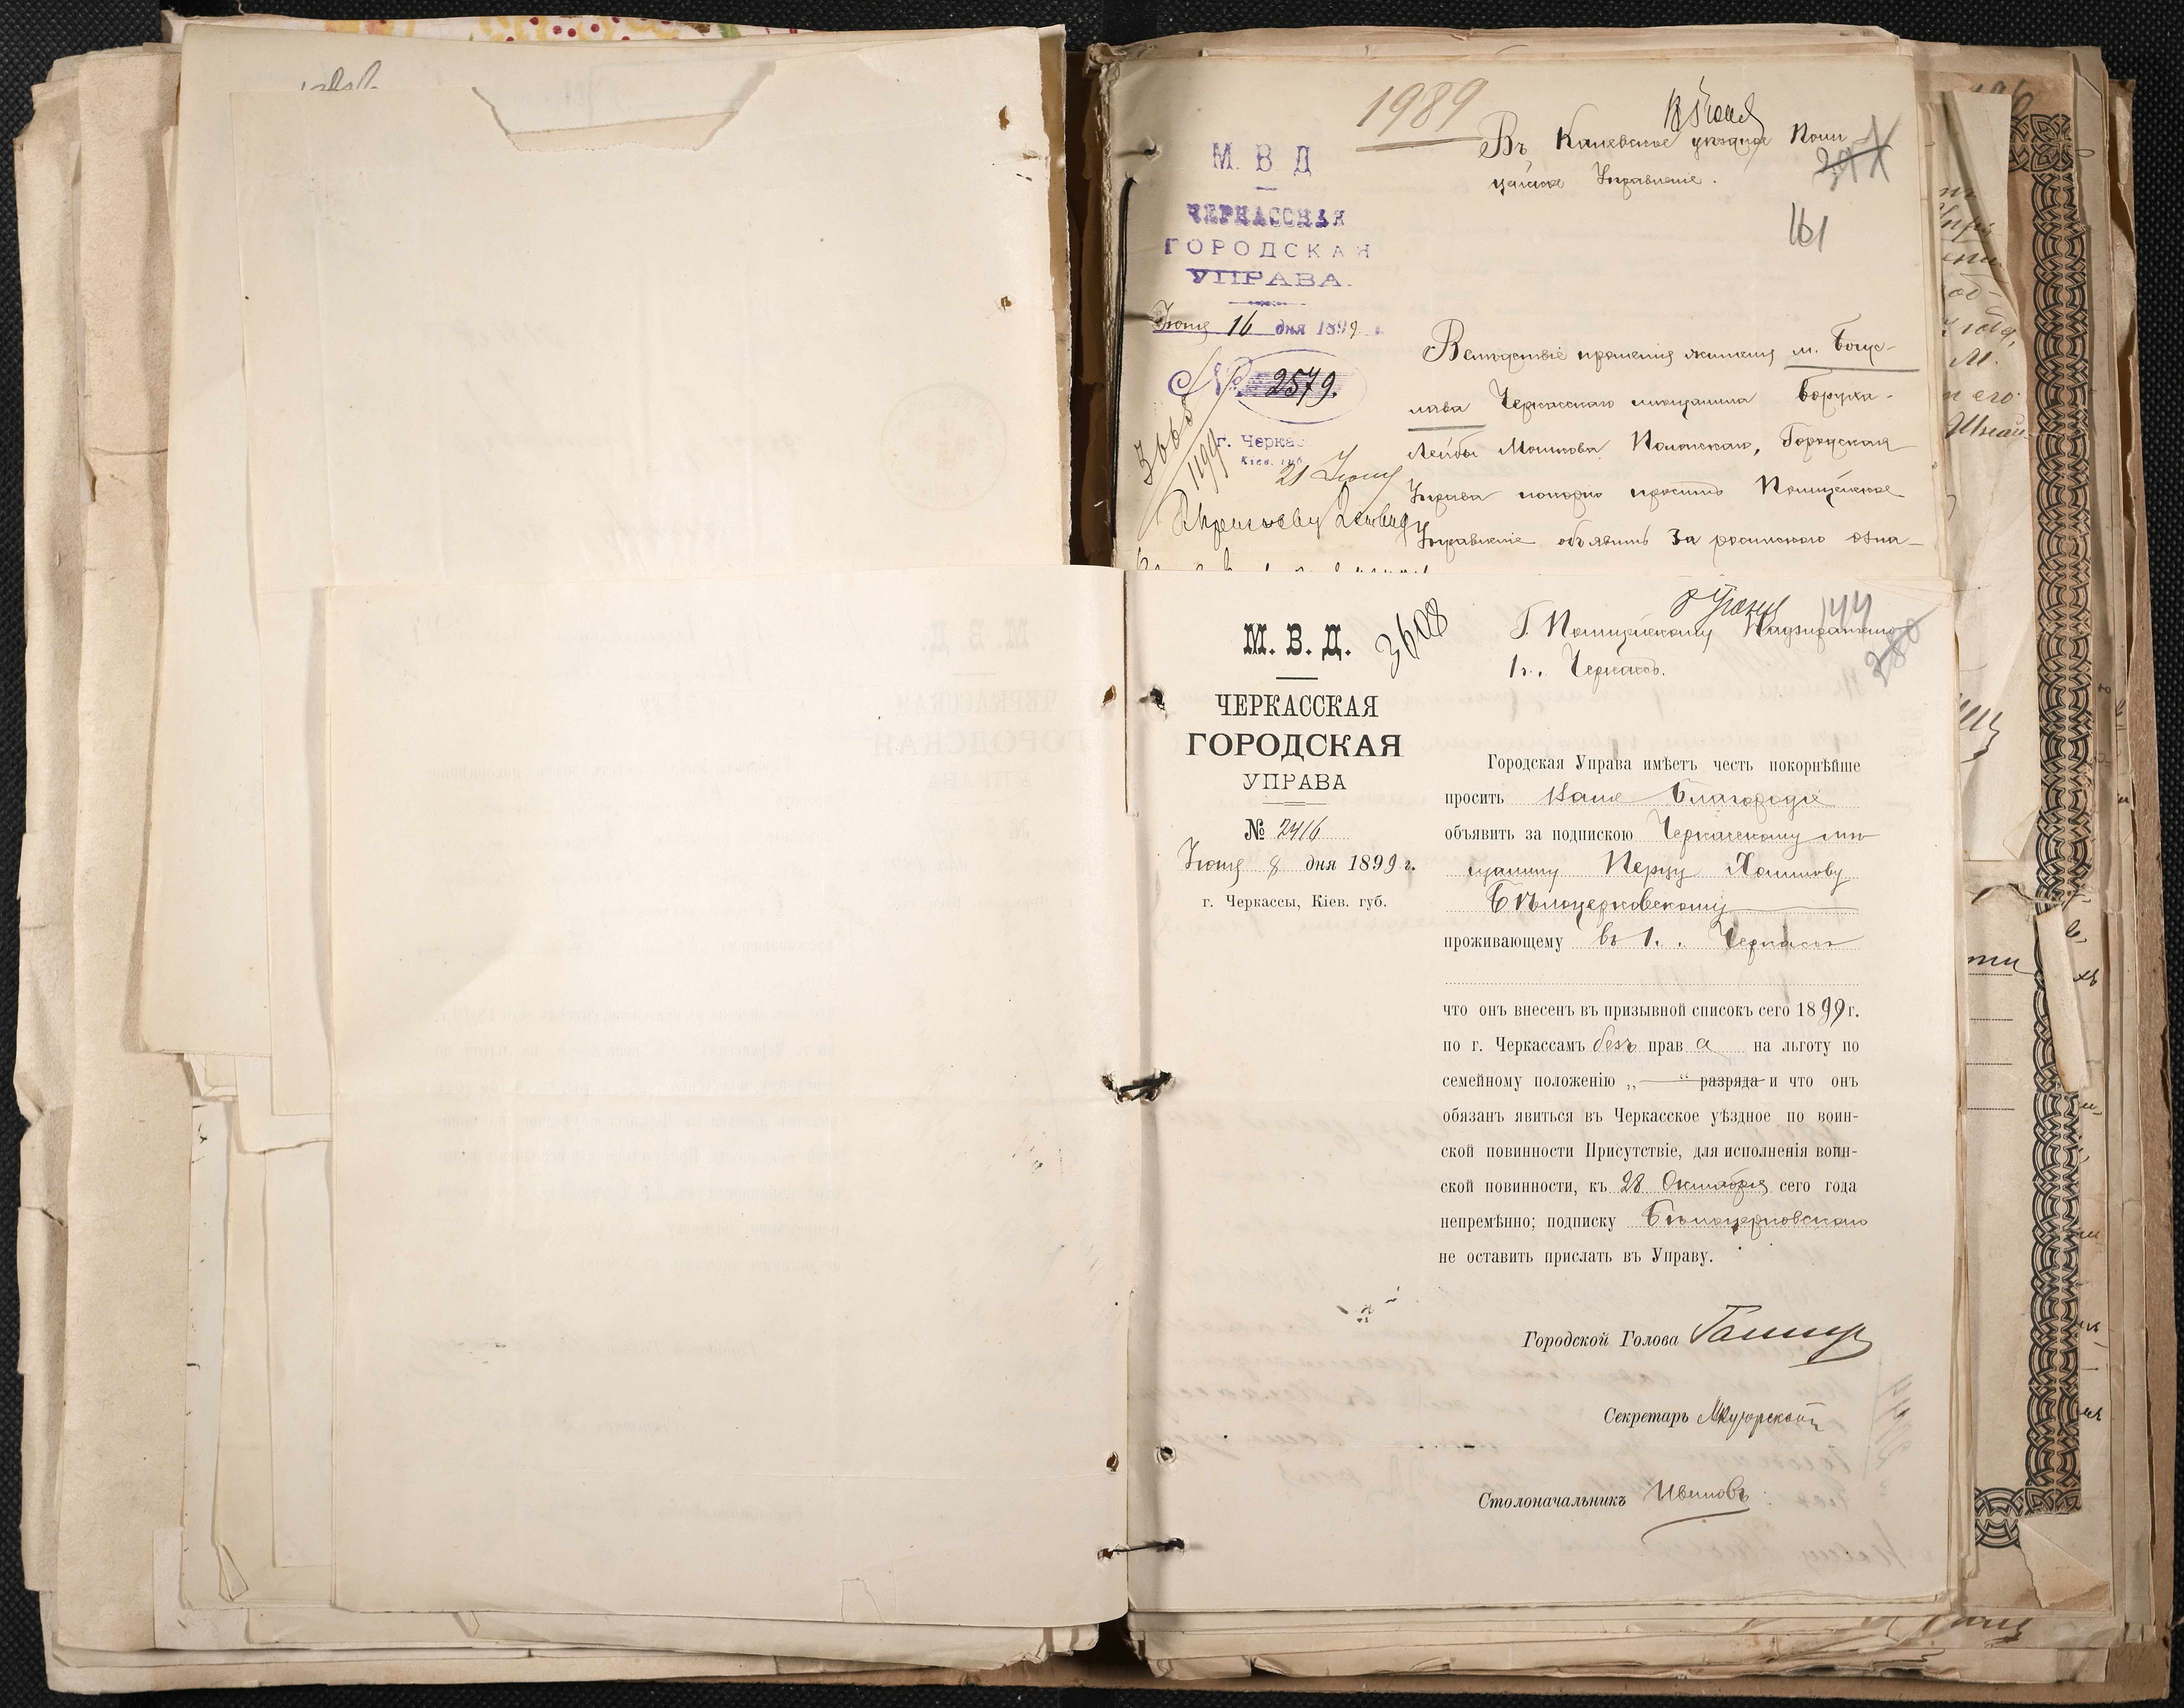 1989
М. В. Д
ЧЕРКАССКАЯ
ГОРОДСКАЯ
УПРАВА.
Іюня 16 дня 1899 г.
№ 2579.
г. Черкас
Кіев. губ.
3665
1199
21 Іюня
Въ Каневское уѣздное Поли-
цейское Управленіе.
161
Вслѣдствіе прошенія жителя м. Богус-
лава Черкасскаго мѣщанина Боруха-
Лейбы Мошкова Полонскаго, Городская
Управа покорно проситъ Полицейское
Управленіе объявить за роспискою озна-
М. В. Д.
3608
ЧЕРКАССКАЯ
ГОРОДСКАЯ
УПРАВА
№ 2416
Іюня 8 дня 1899 г.
г. Черкассы, Кіев. губ.
144
280
Г. Полицейскому Надзирателю
г. Черкассъ.
Городская Управа имѣетъ честь покорнѣйше
просить Ваше Благородіе
объявить за подпискою Черкасскому мѣ-
щанину Перцу Хаимову
Бѣлоцерковскому
проживающему въ г. Черкассы
что онъ внесенъ въ призывной списокъ сего 1899 г.
по г. Черкассамъ безъ права на льготу по
семейному положенію „ — “ разряда и что онъ
обязанъ явиться въ Черкасское уѣздное по воин-
ской повинности Присутствіе, для исполненія воин-
ской повинности, къ 28 Октября сего года
непремѣнно; подписку Бѣлоцерковскаго
не оставить прислать въ Управу.
Городской Голова
Секретарь
Столоначальникъ Ивановъ